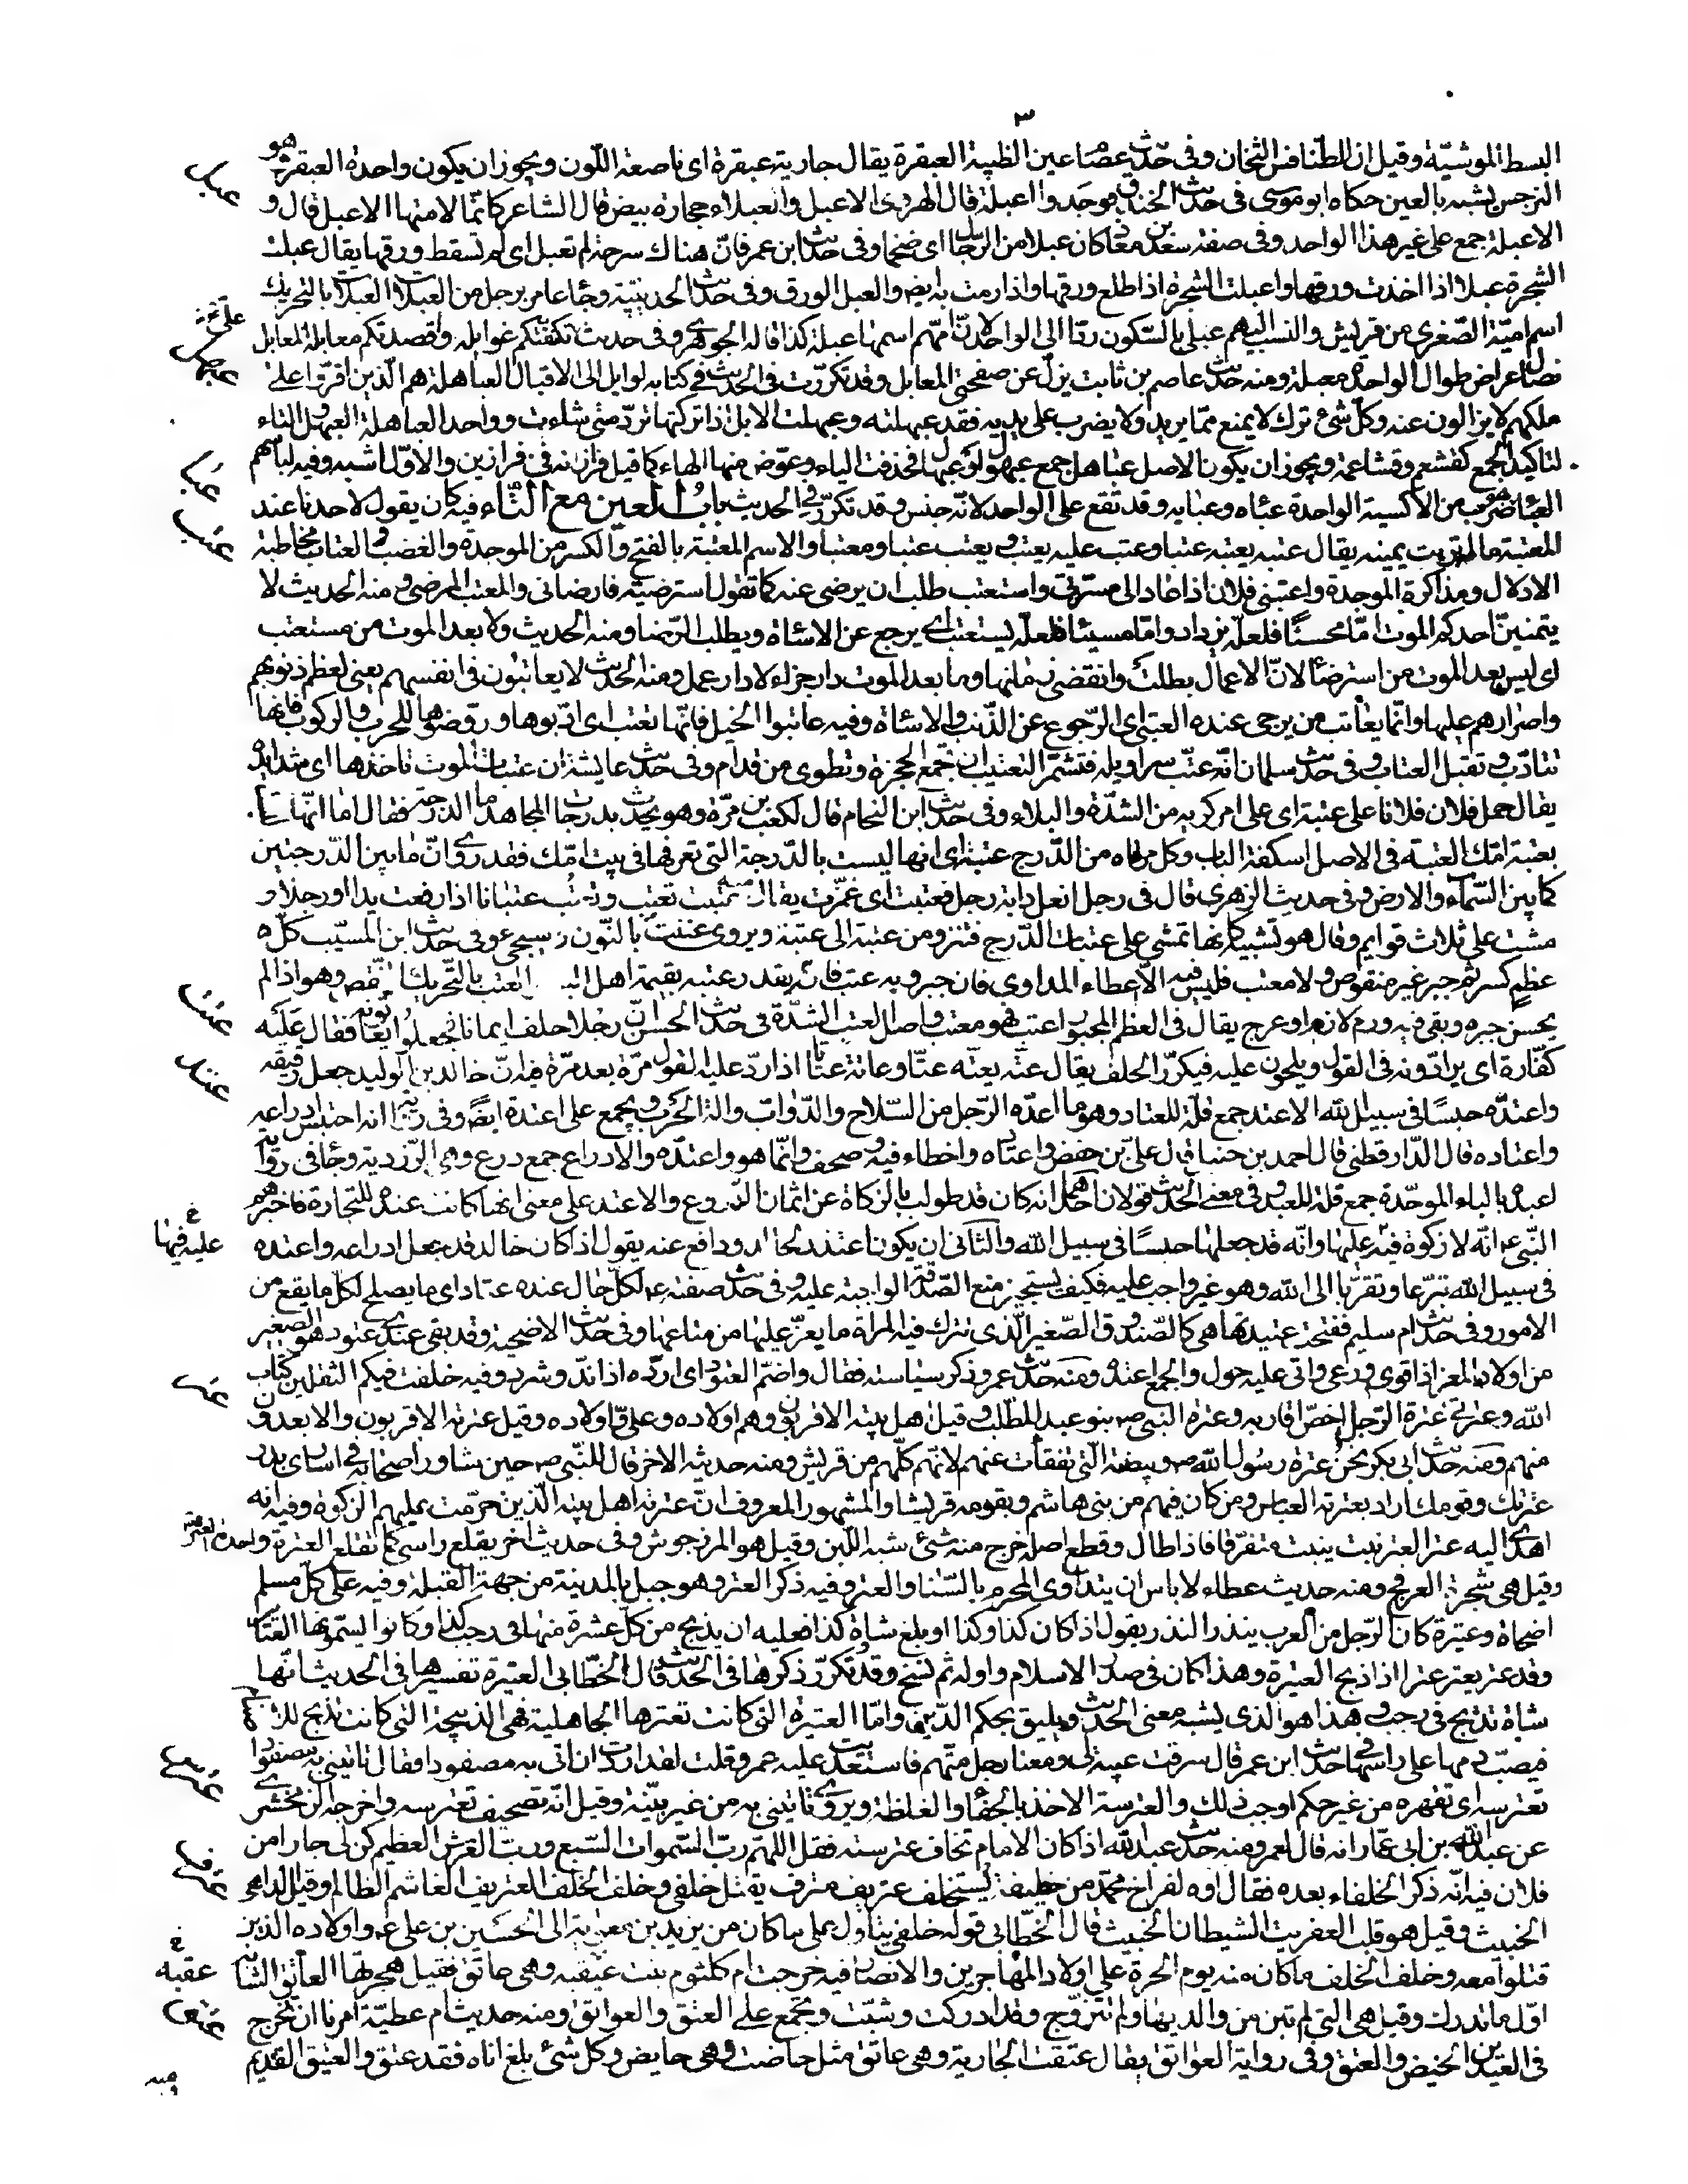 ٣
البسط الموشيّة وقيل ان الطنافس الثخان وفى حديث عصام عين الظبية العبقرة يقال جارية عبقرة اى ناصعة اللّون ويجوز ان يكون واحدة العبقر وهو
النرجس يشبه بالعين حكاه ابو موسى فى حديث الخندق فوجدوا اعبلة قال الهروى الاعبل والعبلاء حجارة بيض قال الشاعر كانّما لامتها الاعبل قال و
الاعبلة جمع على غير هذا الواحد وفى صفة سعد بن معاذ كان عبلا من الرجال اى ضخما وفى حديث ابن عمر فانّ هناك سرحة لم تعبل اى لم تسقط ورقها يقال عبلت
الشجرة عبلا اذا اخذت ورقها واعبلت الشجرة اذا طلع ورقها واذا رمت به ايض والعبل الورق وفى حديث الحديبية وجاء عامر برجل من العبلات العبلات بالتحريك
اسم اميّة الصّغرى من قريش والنسب اليهم عبلى بالسّكون ردّا الى الواحد لانّ امّهم اسمها عبلة كذا قاله الجوهرى وفى حديث تكنفتكم غوائله واقصدتكم معابله المعابل
نصال عراض طوال الواحدة معبلة ومنه حديث عاصم بن ثابت يزلّ عن صفحتى المعابل وقد تكرّرت فى الحديث فى كتابه لوايل الى الاقيال العباهلة هم الّذين اقرّوا على
ملكهم لا يزالون عنه وكلّ شئ ترك لا يمنع ممّا يريد ولا يضرب على يديه فقد عبهلته وعبهلت الابل اذا تركتها ترد متى شاءت وواحد العباهلة العبهل والتاء
لتاكيد الجمع كقشعم وقشاعمة ويجوز ان يكون الاصل عباهيل جمع عبهول او عبهال فحذفت الياء وعوّض منها الهاء كما قيل فرازنة فى فرازين والاوّل اشبه وفيه لباسهم
العباء ضرب من الاكسية الواحدة عباءه وعبايه وقد تقع على الواحد لانّه جنس وقد تكرّر فى الحديث باب العين مع التّاء فيه كان يقول لاحدنا عند
المعتبة ماله تربت يمينه يقال عتبه يعتبه عتبا وعتب عليه يعتب ويعتب عتبا ومعتبا والاسم المعتبة بالفتح والكسر من الموجدة والغضب والعتاب مخاطبة
الادلال ومذاكرة الموجدة واعتبنى فلان اذا عاد الى مسرّتى واستعتب طلب ان يرضى عنه كما تقول استرضيته فارضانى والمعتب المرضى ومنه الحديث لا
يتمنينّ احدكم الموت امّا محسنًا فلعلّه يزداد وامّا مسيئا فلعلّه يستعتب اى يرجع عن الاساة ويطلب الرّضا ومنه الحديث ولا بعد الموت من مستعتب
اى ليس بعد الموت من استرضاء لانّ الاعمال بطلت وانقضى زمانها وما بعد الموت دار جزاء لا دار عمل ومنه الحديث لا يعاتبون فى انفسهم يعنى لعظم ذنوبهم
واصرارهم عليها وانّما يعاتب من يرجى عنده العتبى اى الرّجوع عن الذّنب والاساة وفيه عاتبوا الخيل فانّها تعتب اى ادّبوها وروّضوها للحرب والركوب فانها
تتادّب وتقبل العتاب وفى حديث سلمان انّه عتّب سراويله فتشمّر التعتيب ان تجمع الحجزة وتطوى من قدام وفى حديث عايشة ان عتبات الموت تاخذها اى شدايده
يقال حمل فلان فلانا على عتبة اى على امر كريه من الشدّة والبلاء وفى حديث ابن النحام قال لكعب بن مرّة وهو يحدّث بدرجات المجاهد ما الدرجة فقال اما انّها ليست
بعتبة امّك العتبة فى الاصل اسكفة الباب وكل مرقاه من الدّرج عتبة اى انها ليست بالدّرجة التى تعرفها فى بيت امّك فقد روى انّ ما بين الدّرجتين
كما بين السّماء والارض وفى حديث الزهرى قال فى رجل انعل دابة رجل فعتبت اى غمزت يقال منه عتبت تعتب وتعتُب عتبانا اذا رفعت يدا او رجلا و
مشت على ثلاث قوايم وقال هو تشبيه كانها تمشى على عتبات الدّرج فتنزو من عتبة الى عتبة ويروى عننت بالنّون وسيجئ وفى حديث ابن المسيّب كلّ
عظم كسر ثم جبر غير منقوص ولا معتب فليس فيه الّا اعطاء المداوى فان جبر وبه عتب فانّه يقدر عتبه بقيمة اهل البصر العتب بالتّحريك النّقص وهو اذا لم
يحسن جبره وبقى فيه ورم لازم او عرج يقال فى العظم المجبور اعتب فهو معتب واصل العتب الشدّة فى حديث الحسن ان رجلا حلف ايمانا فجعلوا يعاتّونه فقال عليه
كفّارة اى يرادّونه فى القول ويلحّون عليه فيكرّر الحلف يقال عتّه يعتّه عتّا وعاتّه عتاتا اذا ردّ عليه القول مرّة بعد مرّة فيه انّ خالد بن الوليد جعل رقيقه
واعتده حبسًا فى سبيل الله الاعتد جمع قلّة للعتاد وهو ما اعدّه الرّجل من السّلاح والدّواب والة الحرب ويجمع على اعتدة ايضً وفى رواية انه احتبس ادراعه
واعتاده قال الدّارقطنى قال احمد بن حنبل قال علىّ بن حفص واعتاده واخطاء فيه وصحف وانّما هو واعتده والادراع جمع درع وهى الزّردية وجاء فى رواية
اعبده بالباء الموحّدة جمع قلّة للعبد وفى معنى الحديث قولان احدهما انه كان قد طولب بالزكاة عن اثمان الدّروع والاعتد على معنى انها كانت عنده للتجارة فاخبرهم
النّبى ع انّه لا زكوة فيه عليها وانّه قد جعلها حبسًا فى سبيل الله والثانى ان يكون اعتذر لخالد ودافع عنه يقول اذا كان خالد قد جعل ادراعه واعتده
فى سبيل الله تبرّعا وتقرّبا الى الله وهو غير واجب عليه فكيف يستجيز منع الصّدقة الواجبة عليه وفى حديث صفته ع لكلّ حال عنده عتاد اى ما يصلح لكل ما يقع من
الامور وفى حديث ام سليم ففتحت عتيدتها هى كالصّندوق الصّغير الّذى تترك فيه المراة ما يعزّ عليها من متاعها وفى حديث الاضحية وقد بقى عندى عتود هو الصغير
من اولاد المعز اذا قوى ورعى واتى عليه حول والجمع اعتدة ومنه حديث عمر وذكر سياسته فقال واضمّ العتود اى اردّه اذا ندّ وشرد وفيه خلفت فيكم الثقلين كتاب
الله وعترتى عترة الرّجل اخصّ اقاربه وعترة النبى ص بنو عبد المطّلب وقيل اهل بيته الاقربون وهم اولاده وعلى واولاده وقيل عترته الاقربون والابعدون
منهم ومنه حديث ابى بكر نحن عترة رسول الله ص وبيضته الّتى تفقات عنهم لانّهم كلّهم من قريش ومنه حديثه الاخر قال للنّبى ص حين شاور اصحابه فى اسارى بدر
عترتك وقومك اراد بعترته العباس ومن كان فيهم من بنى هاشم وبقومه قريشا والمشهور المعروف انّ عترته اهل بيته الّذين حرّمت عليهم الزكوة وفيه انّه
اهدى اليه عتر العتر نبت ينبت متفرّقا فاذا طال وقطع اصله خرج منه شئ شبه اللّبن وقيل هو المرزجوش وفى حديث اخر يقلع راسى كما تقلع العترة واحدة العتر
وقيل هى شجرة العرفج ومنه حديث عطاء لا باس ان يتداوى المحرم بالسّنا والعتر وفيه ذكر العتر وهو جبل بالمدينة من جهة القبلة وفيه على كلّ مسلم
اضحاة وعتيرة كان الرّجل من العرب ينذر النذر يقول اذا كان كذا وكذا او بلغ شاؤه كذا فعليه ان يذبح من كلّ عشرة منها فى رجب كذا وكانوا يسمّونها العتائر
وقد عتر يعتر عترا اذا ذبح العتيرة وهذا كان فى صدر الاسلام واوله ثم نسخ وقد تكرّر ذكرها فى الحديث قال الخطّابى العتيرة تفسيرها فى الحديث انّها
شاة تذبح فى رجب وهذا هو الذى يشبه معنى الحديث ويليق بحكم الدّين وامّا العتيرة الّتى كانت تعترها الجاهلية فهى الذبيحة التى كانت تذبح للاصنام
فيصبّ دمها على راسها فى حديث ابن عمر قال سرقت عيبة لى ومعنا رجل متّهم فاستعديت عليه عمر وقلت لقد اردت ان اتى به مصفودا فقال تاتينى به مصفودا
تعترسه اى تقهره من غير حكم اوجب ذلك والعترسة الاخذ بالجفاء والغلظة ويروى تاتينى به من غير بيّنة وقيل انّه تصحيف تعترسه واخرجه الزمخشرى
عن عبد الله بن ابى عمّار انه قال لعمر ومنه حديث عبد الله اذا كان الامام تخاف عترسته فقل اللهمّ ربّ السّموات السّبع وربّ العرش العظيم كن لى جارا من
فلان فيه انّه ذكر الخلفاء بعده فقال اوه لفراخ محمّد من خليفة يستخلف عتريف مترف يقتل خلفى وخلف الخلف العتريف الغاشم الظالم وقيل الداهى
الخبيث وقيل هو قلب العفريت الشيطان الخبيث قال الخطّابى قوله خلفى يتاول على ما كان من يزيد بن معاوية الى الحسين بن على ع واولاده الذين
قتلوا معه وخلف الخلف ما كان منه يوم الحرة على اولاد المهاجرين والانصار فيه خرجت ام كلثوم بنت عقبة وهى عاتق فقبل هجرتها العاتق الشابة
اوّل ما تدرك وقيل هى التى لم تبن من والديها ولم تتزوّج وقد ادركت وشبّت وتجمع على العتق والعواتق ومنه حديث ام عطيّة امرنا ان نخرج
فى العيدين الحيض والعتق وفى رواية العواتق يقال عتقت الجارية وهى عاتق مثل حاضت وهى حايض وكل شئ بلغ اناه فقد عتق والعتيق القديم
عبل
عبهل
عبا
عتب
عتت
عتد
عليه فيها
عتر
عترس
عترف
عقبة
عتق
ومنه